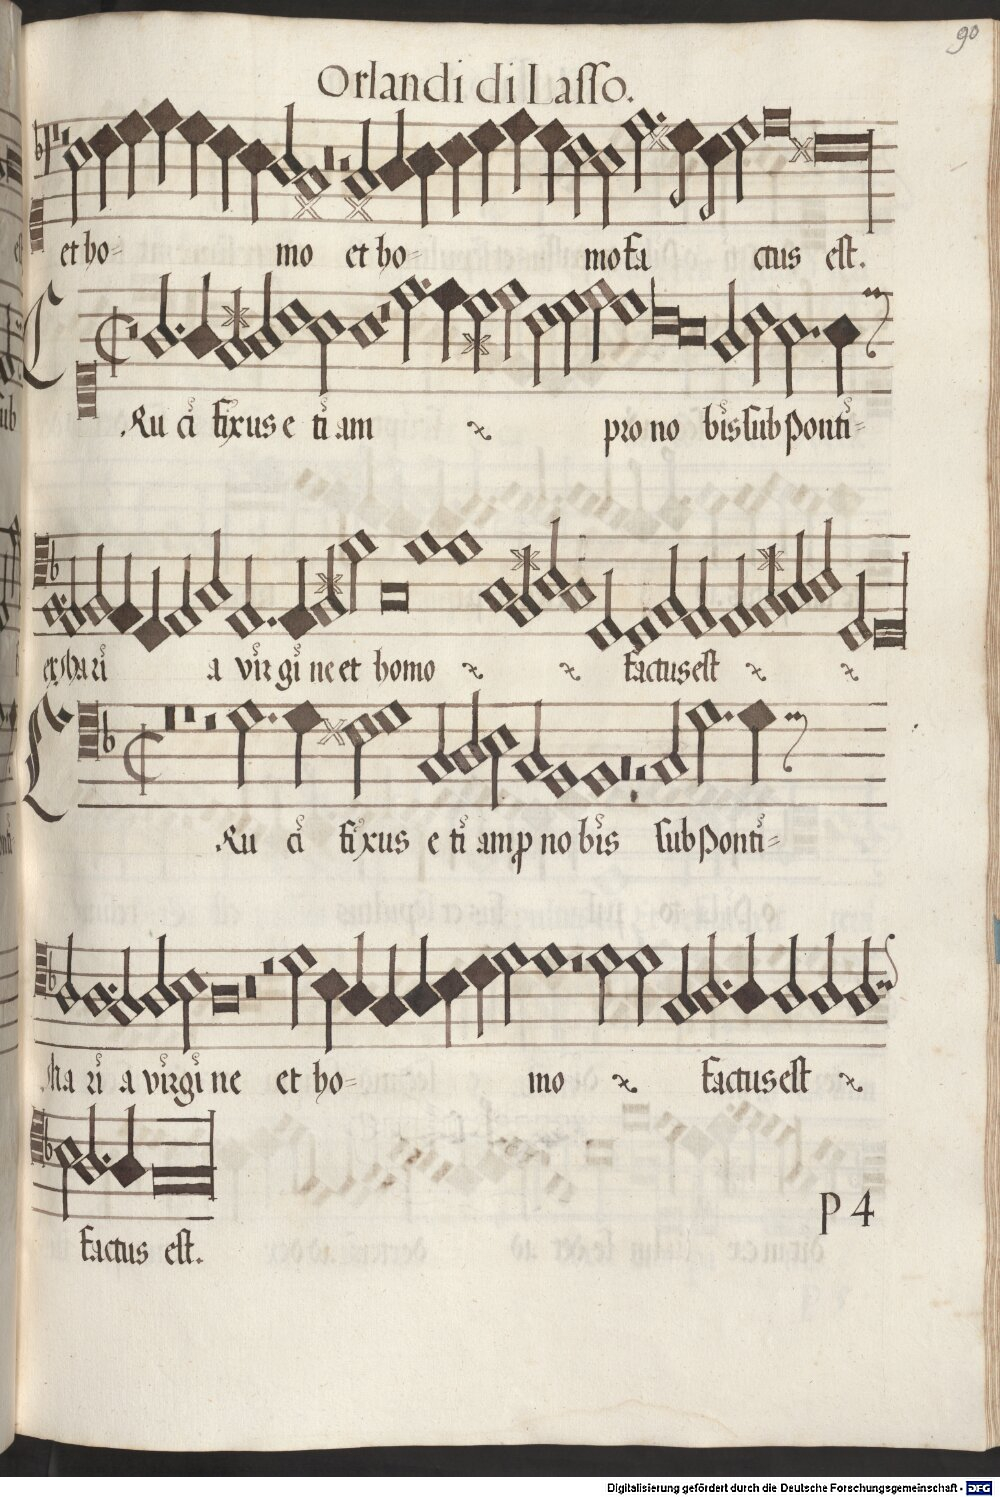 90
Orlandi di Lasso.
et ho- mo et ho- mo fa ctus est.
C Ru ci fixus e ti am pro no bis sub Ponti=
ex Ma ri a vir gi ne et homo factus est
C Ru ci fixus e ti am p no bis sub Ponti=
Ma ri a virgi ne et ho= mo factus est
factus est.
P 4
Digitalisierung gefördert durch die Deutsche Forschungsgemeinschaft - DFG